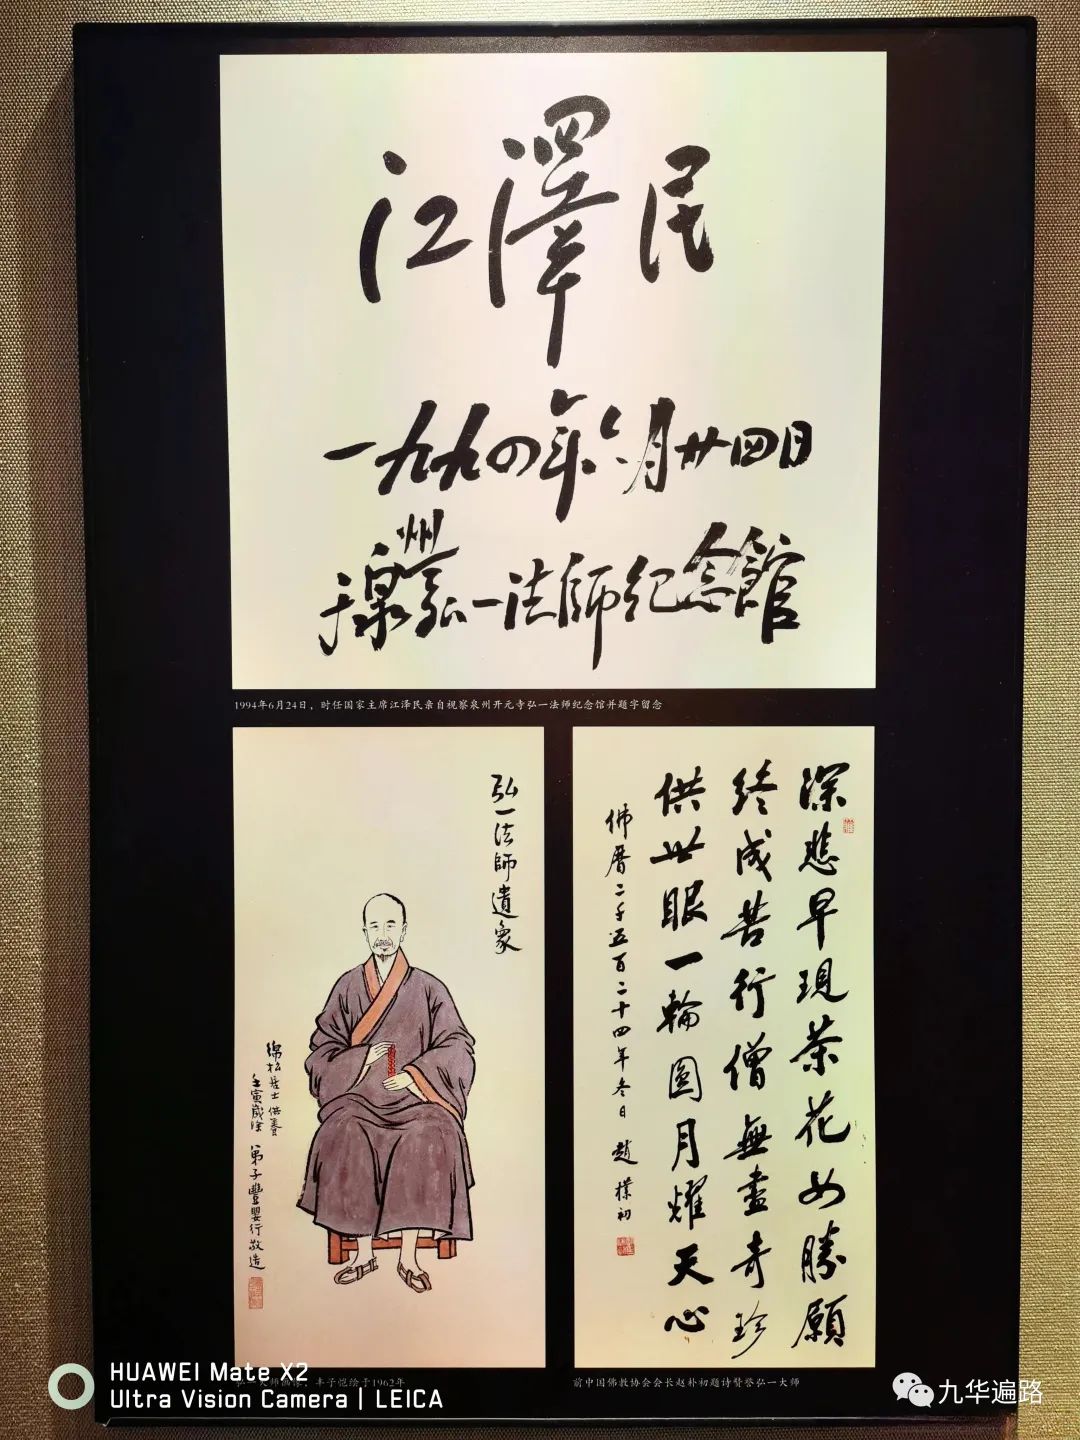 江澤民
一九九四年六月廿四日
于泉州弘一法師纪念館
1994年6月24日，时任国家主席江泽民亲自视察泉州开元寺弘一法师纪念馆并题字留念
弘一法師遺象
綿松居士供養
壬寅歲深 弟子豐嬰行敬造
弘一大师画像，丰子恺绘于1962年
深悲早現茶花女勝願
终成苦行僧無盡奇珍
供世眼一輪圓月耀天心
佛曆二千五百二十四年冬日 趙樸初
前中国佛教协会会长赵朴初题诗赞誉弘一大师
HUAWEI Mate X2
Ultra Vision Camera | LEICA
九华遍路